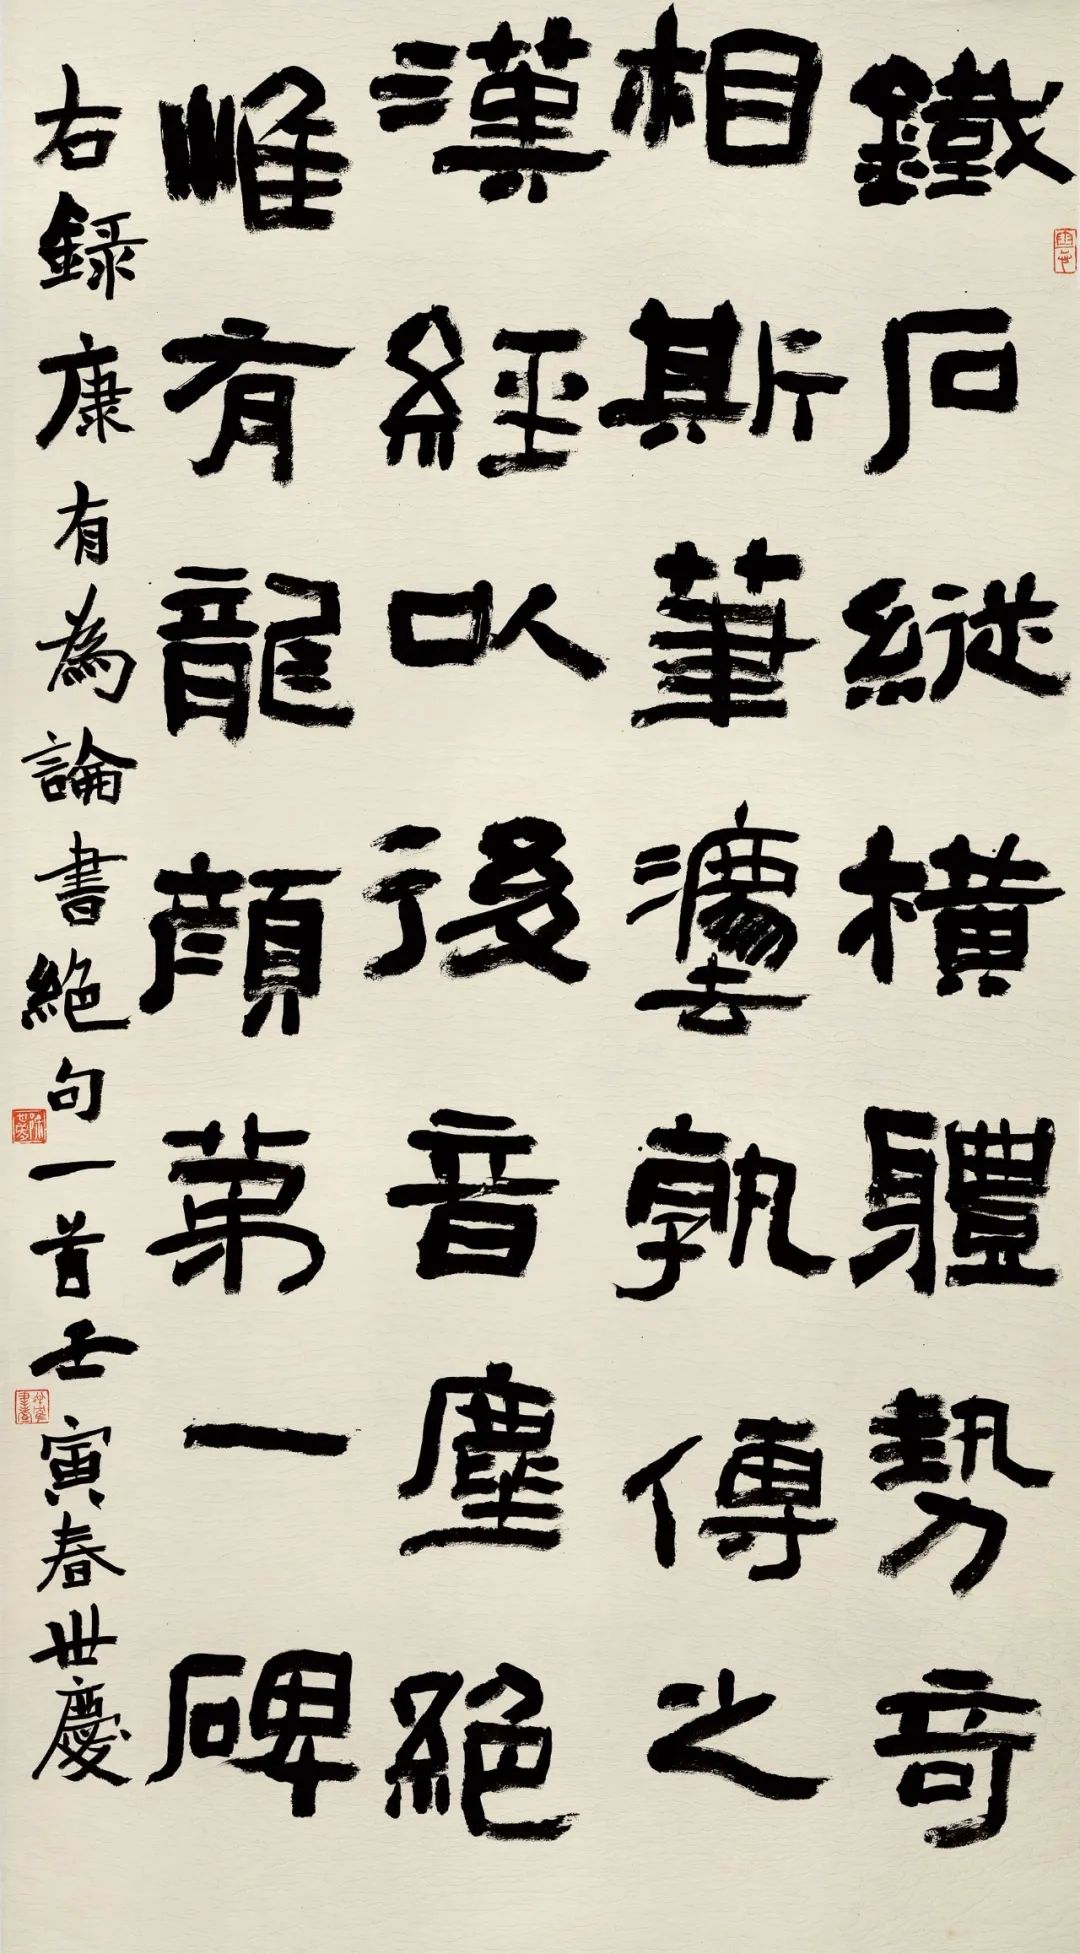 鐵石縱橫體勢奇
相斯筆灋孰傳之
漢經以後音塵絕
惟有龍顏苐一碑
右録康有為論書絕句一首壬寅春世慶